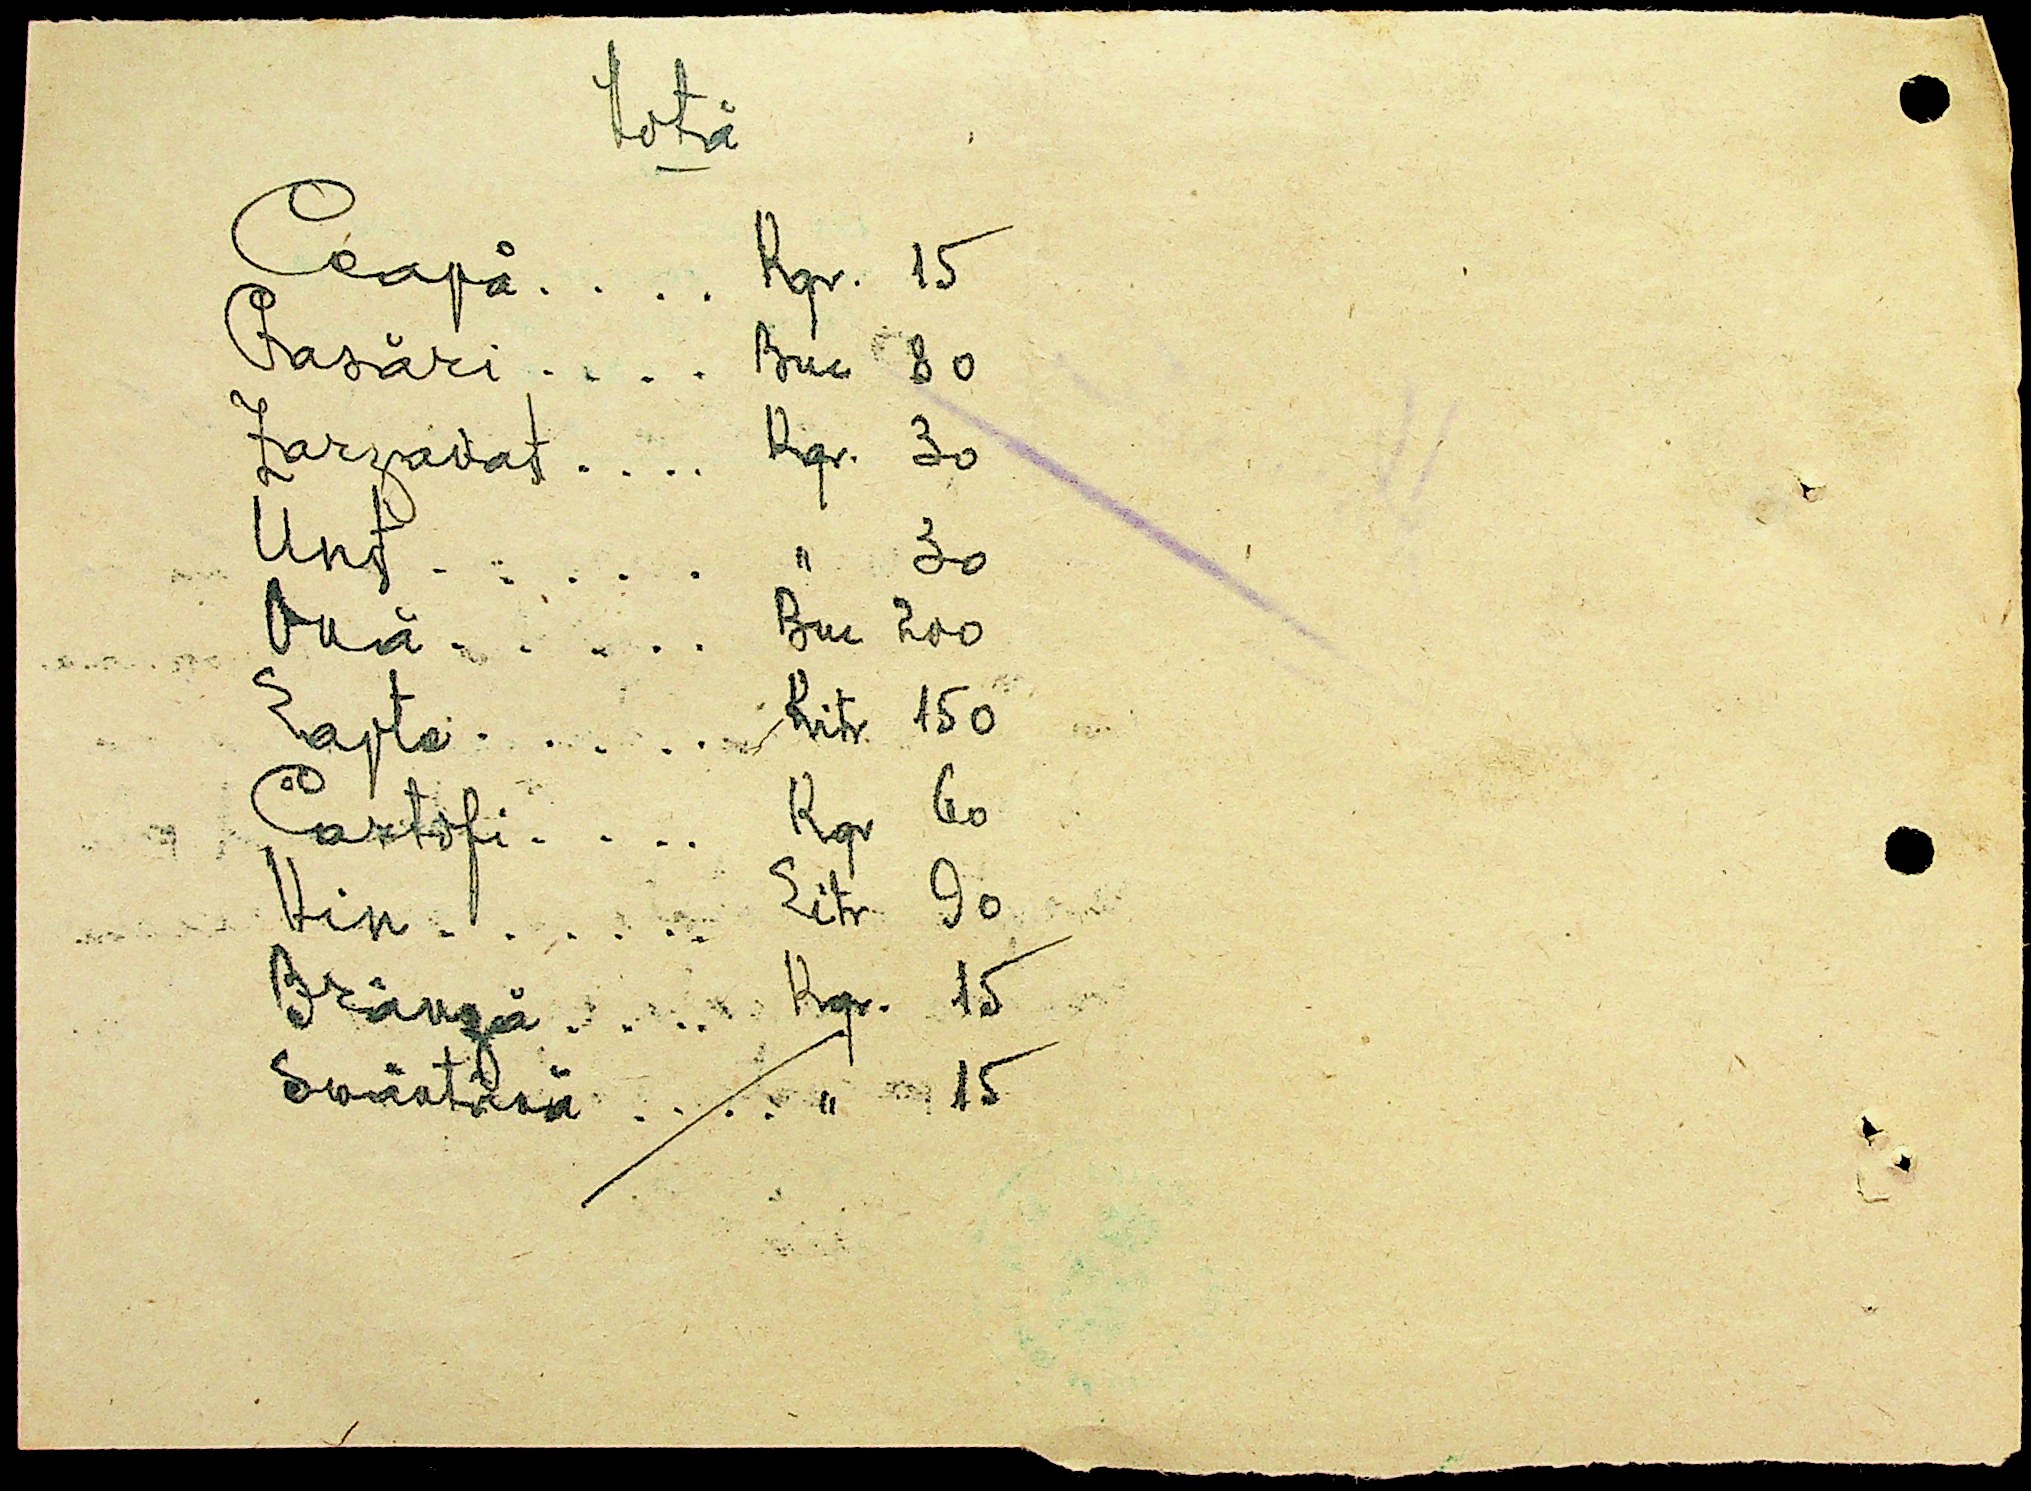 Notă
Ceapă.... Kgr. 15
Pasări.... Buc 80
Zarzavat.... Kgr. 30
Unt..... " 30
Ouă..... Buc 200
Lapte..... Litr 150
Cartofi.... Kgr 60
Vin...... Litr 90
Brânză.... Kgr. 15
Smântână.... " 15